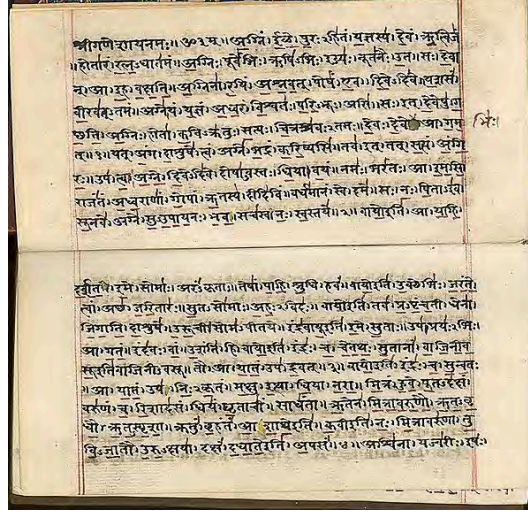 श्रीगणेशायनमः॥ॐ३म्॥अग्निं।ईळे।पुरःऽहितं।यज्ञस्य।देवं।ऋत्विजं
॥होतारं।रत्नऽधातमं॥अग्निः।पूर्वेभिः।ऋषिऽभिः।ईड्यः।नूतनैः।उत।सः।देवा
न्।आ।इह।वक्षति॥अग्निना।रयिं।अश्नवत्।पोषं।एव।दिवेऽदिवे॥यशसं।
वीरवत्ऽतमं॥अग्ने।यं।यज्ञं।अध्वरं।विश्वतः।परिऽभूः।असि॥सः।इत्।देवेषु।ग
च्छति॥अग्निः।होता।कविऽक्रतुः।सत्यः।चित्रश्रवःऽतमः॥देवः।देवे आ।गम
भिः।
त्॥१॥यत्।अंग।दाशुषे।त्वं।अग्ने।भद्रं।करिष्यसि॥तव।इत्।तत्।सत्यं।अंगि
रः॥उप।त्वा।अग्ने।दिवेऽदिवे।दोषाऽवस्तः।धिया।वयं॥नमः।भरंतः।आ।इमसि॥
राजंतं।अध्वराणां।गोपां।ऋतस्य।दीदिविं॥वर्धमानं।स्वे।दमे॥सः।नः।पिताऽइव।
सूनवे।अग्ने।सुऽउपायनः।भव॥सचस्व।नः।स्वस्तये॥२॥वायोइति।आ।याहि।
दर्शत।इमे।सोमाः।अरंऽकृताः॥तेषां।पाहि।श्रुधि।हवं॥वायोइति।उक्थेभिः।जरंते।
त्वां।अच्छ।जरितारः॥सुतऽसोमाः।अहःऽविदः॥वायोइति।तव।प्रऽपृंचती।धेना।
जिगाति।दाशुषे॥उरूची।सोमऽपीतये॥इंद्रवायूइति।इमे।सुताः।उप।प्रयःऽभिः।
आ।गतं॥इंदवः।वां।उशंति।हि॥वायोइति।इंद्रः।च।चेतथः।सुतानां।वाजिनीव
सूइतिवाजिनीऽवसू॥तौ।आ।यातं।उप।द्रवत्॥३॥वायोइति।इंद्रः।च।सुन्वतः
।आ।यातं।उप।निःऽकृतं॥मक्षु।इत्था।धिया।नरा॥मित्रं।हुवे।पूतऽदक्षं।
वरुणं।च।रिशादसं॥धियं।घृताचीं।साधंता॥ऋतेन।मित्रावरुणौ।ऋतऽवृ
धौ।ऋतऽस्पृशा॥क्रतुं।बृहंतं।आशाथेइति॥कवीइति।नः।मित्रावरुणा।तु
विऽजातौ।उरुऽक्षया॥दक्षं।दधातेइति।अपसं॥४॥अश्विना।यज्वरीः।इषः।